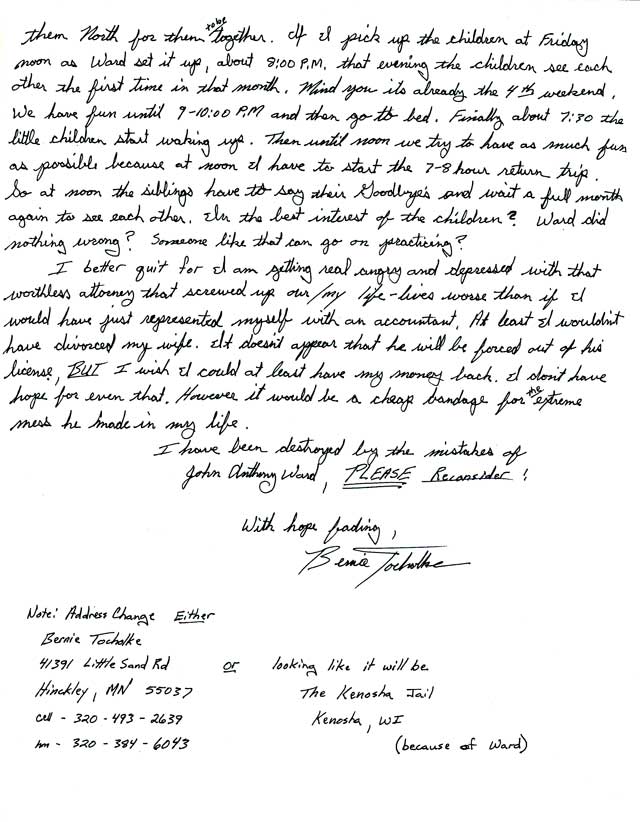 to be
them North for them together. If I pick up the children at Friday
noon as Ward set it up, about 8:00 P.M. that evening the children see each
other the first time in that month. Mind you its already the 4th weekend.
We have fun until 9-10:00 P.M and then go to bed. Finally about 7:30 the
little children start waking up. Then until noon we try to have as much fun
as possible because at noon I have to start the 7-8 hour return trip.
So at noon the siblings have to say their Goodbye's and wait a full month
again to see each other. In the best interest of the children? Ward did
nothing wrong? Someone like that can go on practicing?
I better quit for I am getting real angry and depressed with that
worthless attorney that screwed up our/my life-lives worse than if I
would have just represented myself with an accountant. At least I wouldn't
have divorced my wife. It doesn't appear that he will be forced out of his
license, BUT I wish I could at least have my money back. I don't have
hope for even that. However it would be a cheap bandage for the extreme
mess he made in my life.
I have been destroyed by the mistakes of
John Anthony Ward, PLEASE Reconsider!
With hope fading,
Bernie Tocholke
Note: Address Change Either
Bernie Tocholke
41391 Little Sand Rd or looking like it will be
Hinckley, MN 55037 The Kenosha Jail
cell - 320-493-2639 Kenosha, WI
hm - 320-384-6043 (because of Ward)